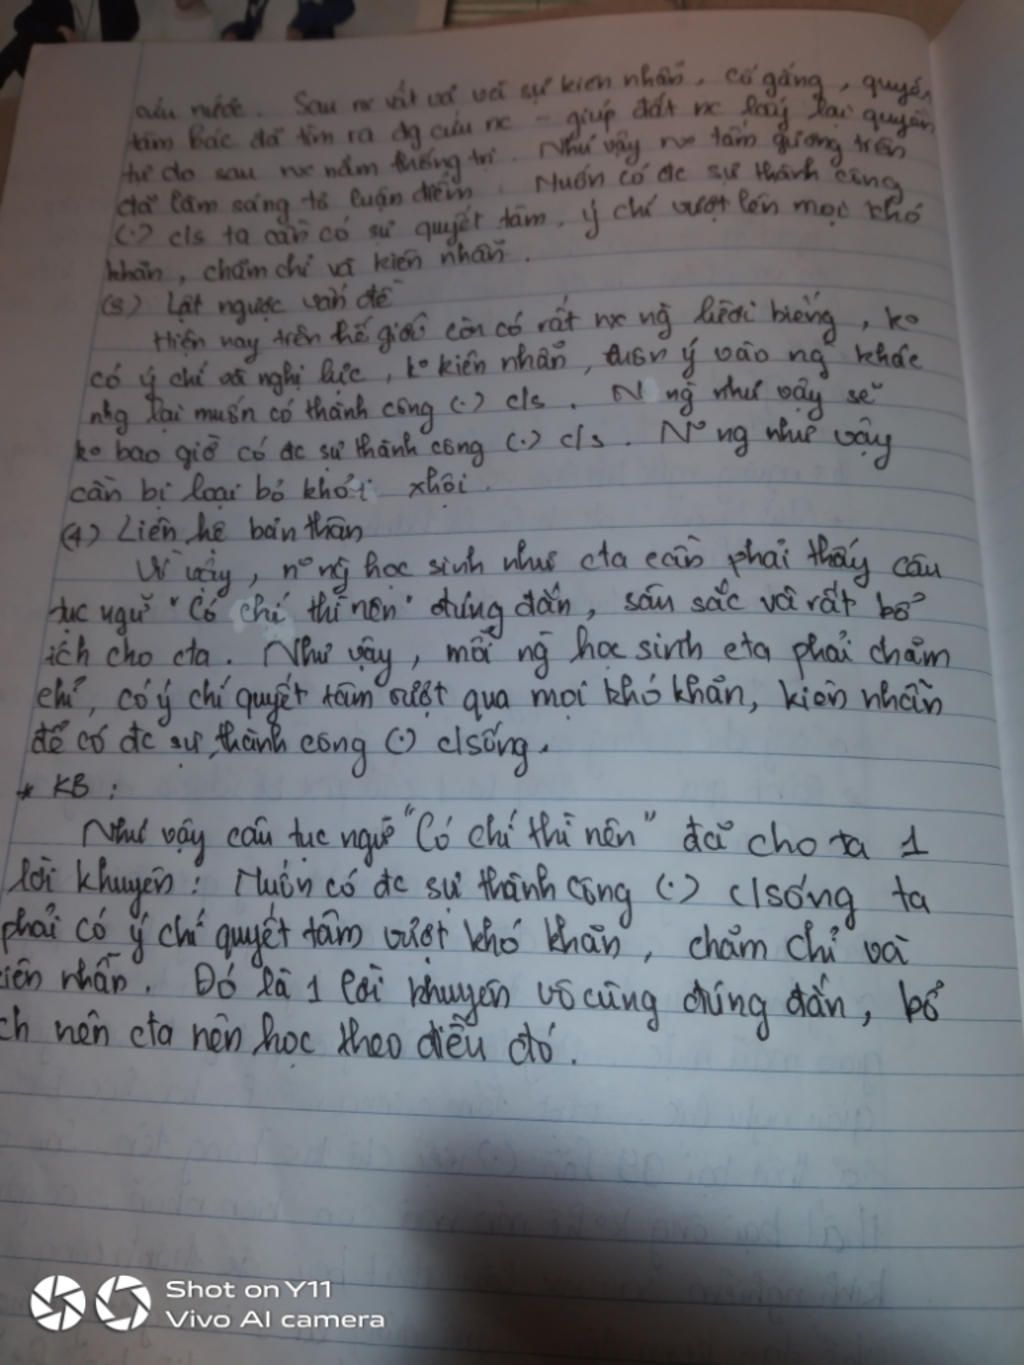 cứu nước. Sau nx vất vả với sự kiên nhẫn, cố gắng, quyết
tâm Bác đã tìm ra đg cứu nc - giúp đất nc lấy lại quyền
tự do sau nx năm thống trị. Như vậy nx tấm gương trên
đã làm sáng tỏ luận điểm. Muốn có đc sự thành công
(.) c/s ta cần có sự quyết tâm, ý chí vượt lên mọi khó
khăn, chăm chỉ và kiên nhẫn.
(3) Lật ngược vấn đề
Hiện nay trên thế giới còn có rất nx ng lười biếng, ko
có ý chí và nghị lực, ko kiên nhẫn, ý vào ng khác
nhg lại muốn có thành công (.) c/s. N ng như vậy sẽ
ko bao giờ có đc sự thành công (.) c/s. No ng như vậy
cần bị loại bỏ khỏi xhội.
(4) Liên hệ bản thân
Vì vậy, no ng học sinh như cta cần phải thấy câu
tục ngữ "Có chí thì nên" đúng đắn, sâu sắc và rất bổ
ích cho cta. Như vậy, mỗi ng học sinh cta phải chăm
chỉ, có ý chí quyết tâm vượt qua mọi khó khăn, kiên nhẫn
để có đc sự thành công (.) c/sống.
* KB:
Như vậy câu tục ngữ "Có chí thì nên" đã cho ta 1
lời khuyên: Muốn có đc sự thành công (.) c/sống ta
phải có ý chí quyết tâm vượt khó khăn, chăm chỉ và
kiên nhẫn. Đó là 1 lời khuyên vô cùng đúng đắn, bổ
ch nên cta nên học theo điều đó.
Shot on Y11
Vivo AI camera